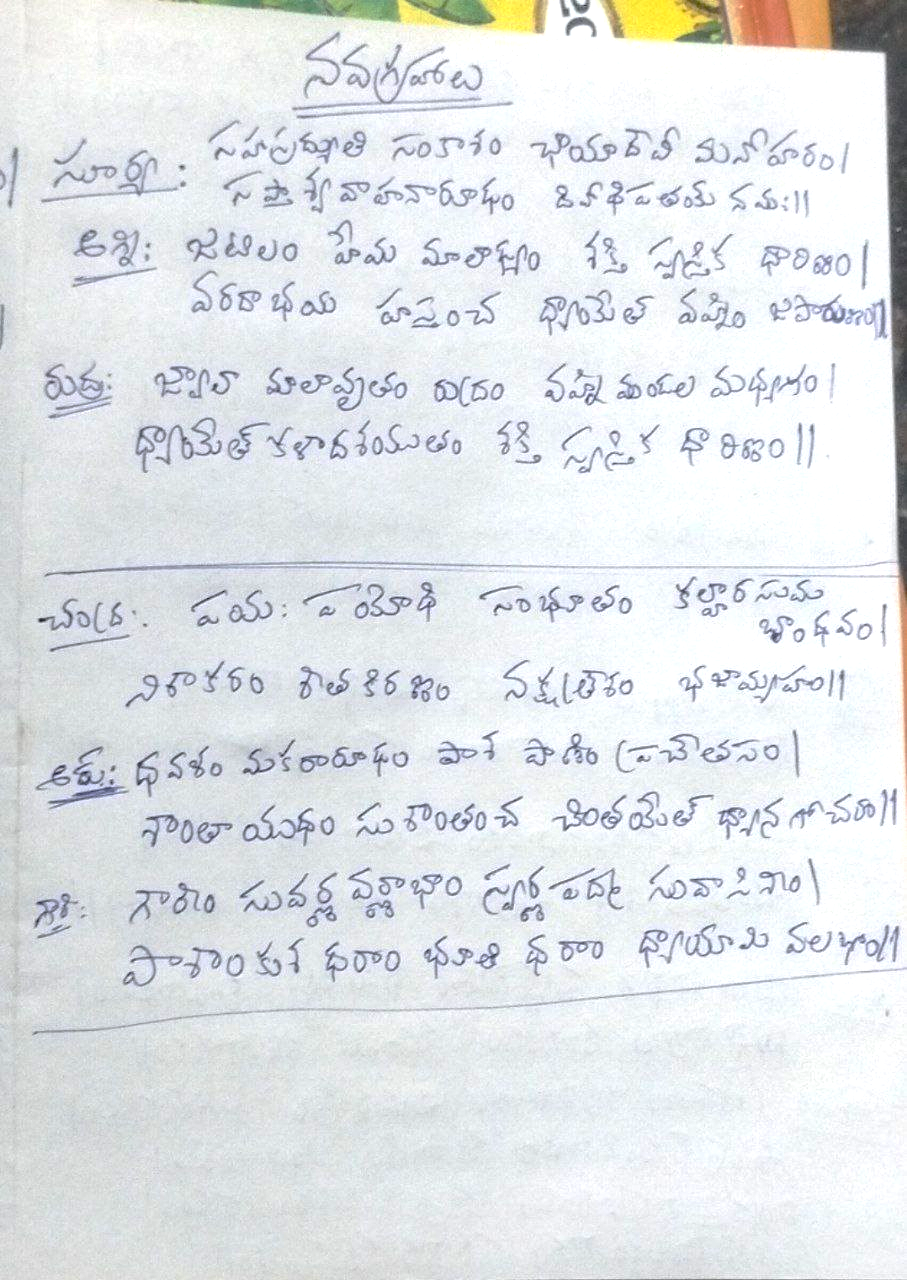 నవగ్రహాలు
సూర్య : సహస్రద్యుతి సంకాశం ఛాయాదేవీ మనోహరం|
సప్తాశ్వ వాహనారూఢం దివాధిపతయే నమః||
అగ్ని: జటిలం హేమ మాలాక్షం శక్తి స్వస్తిక ధారిణం|
వరదాభయ హస్తంచ ధ్యాయేత్ వహ్నిం జపారుణం||
రుద్ర: జ్వాలా మాలావృతం రుద్రం వహ్ని మండల మధ్యగం|
ధ్యాయేత్ కళాదశయుతం శక్తి స్వస్తిక ధారిణం||
చంద్ర: పయ: పయోధి సంభూతం కల్హారసుమ
బాంధవం|
నిశాకరం శీతకిరణం నక్షత్రేశం భజామ్యహం||
ధవళం మకరారూఢం పాశ పాణిం ప్రచేతసం|
శాంతాయుధం సుశాంతంచ చింతయేత్ ధ్యానగోచరం||
గౌరి: గౌరీం సువర్ణ వర్ణాభాం స్వర్ణ పద్మ సువాసినీం|
పాశాంకుశ ధరాం భూతి ధరాం ధ్యాయామి